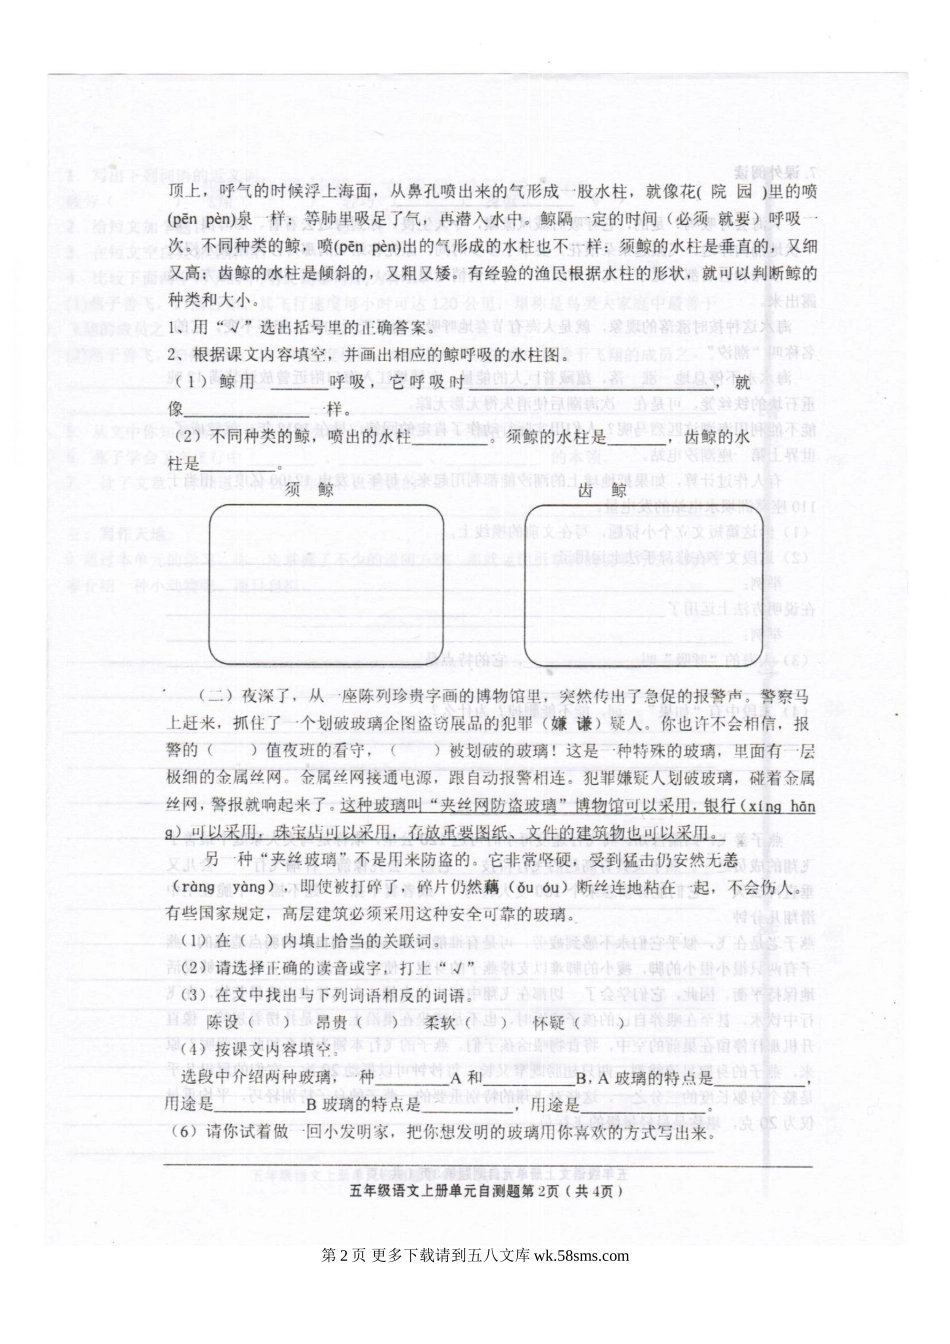 顶上，呼气的时候浮上海面，从鼻孔喷出来的气形成一股水柱，就像花( 院 园 )里的喷
(pēn pèn)泉一样；等肺里吸足了气，再潜入水中。鲸隔一定的时间（必须 就要）呼吸一
次。不同种类的鲸，喷(pēn pèn)出的气形成的水柱也不一样：须鲸的水柱是垂直的，又细
又高；齿鲸的水柱是倾斜的，又粗又矮。有经验的渔民根据水柱的形状，就可以判断鲸的
种类和大小。
1、用“√”选出括号里的正确答案。
2、根据课文内容填空，并画出相应的鲸呼吸的水柱图。
（1）鲸用________呼吸，它呼吸时________________________________，就
像________________一样。
（2）不同种类的鲸，喷出的水柱__________。须鲸的水柱是________，齿鲸的水
柱是__________。
须 鲸 齿 鲸
（二）夜深了，从一座陈列珍贵字画的博物馆里，突然传出了急促的报警声。警察马
上赶来，抓住了一个划破玻璃企图盗窃展品的犯罪（嫌 谦）疑人。你也许不会相信，报
警的（ ）值夜班的看守，（ ）被划破的玻璃！这是一种特殊的玻璃，里面有一层
极细的金属丝网。金属丝网接通电源，跟自动报警相连。犯罪嫌疑人划破玻璃，碰着金属
丝网，警报就响起来了。这种玻璃叫“夹丝网防盗玻璃”博物馆可以采用，银行(xíng hān
g)可以采用，珠宝店可以采用，存放重要图纸、文件的建筑物也可以采用。
另一种“夹丝玻璃”不是用来防盗的。它非常坚硬，受到猛击仍安然无恙
（ràng yàng），即使被打碎了，碎片仍然藕（ǒu óu）断丝连地粘在一起，不会伤人。
有些国家规定，高层建筑必须采用这种安全可靠的玻璃。
（1）在（ ）内填上恰当的关联词。
（2）请选择正确的读音或字，打上“√”
（3）在文中找出与下列词语相反的词语。
陈设（ ） 昂贵（ ） 柔软（ ） 怀疑（ ）
（4）按课文内容填空。
选段中介绍两种玻璃，一种__________A 和____________B，A 玻璃的特点是____________，
用途是____________B 玻璃的特点是____________，用途是________________。
（6）请你试着做一回小发明家，把你想发明的玻璃用你喜欢的方式写出来。
五年级语文上册单元自测题第2页（共 4页）
第 2 页 更多下载请到五八文库 wk.58sms.com